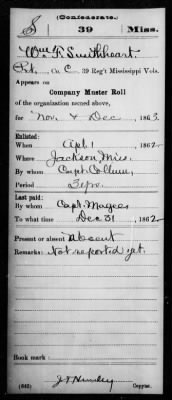 (Confederate.)
S 39 Miss.
Wm F Smithheart
Pvt, Co. C, 39 Reg't Mississippi Vols.
Appears on
Company Muster Roll
of the organization named above,
for Nov. & Dec, 1863.
Enlisted:
When Apl. 1, 1862
Where Jackson, Miss.
By whom Capt. Collum,
Period 3 yrs.
Last paid:
By whom Capt. Magee
To what time Dec 31, 1862
Present or absent Absent
Remarks: Not reported yet.
Book mark:
(642) Copyist.